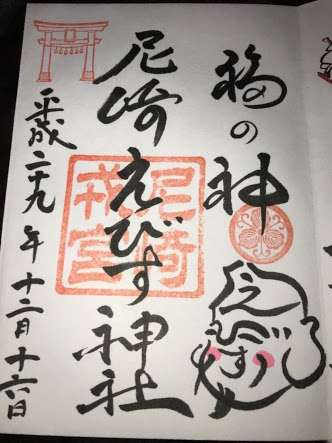 福の神
えびす
尼崎えびす神社
尼崎
戎宮
平成二十九年十二月十六日